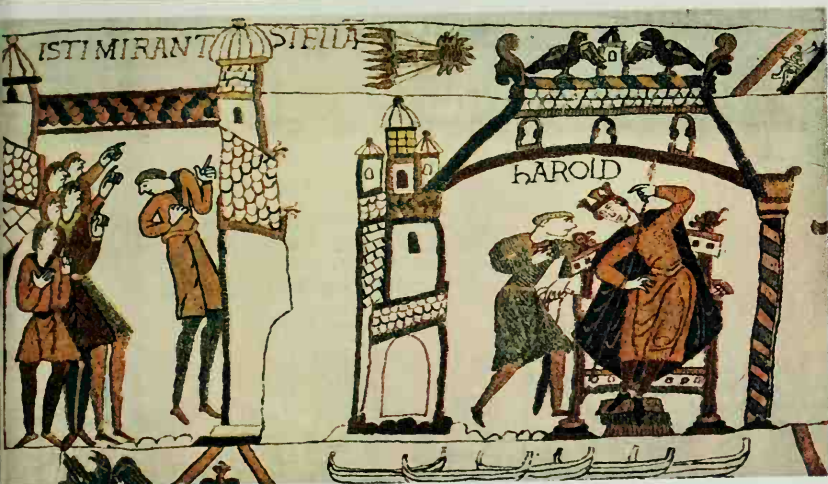 ISTI MIRANT STELLÃ
hAROLD